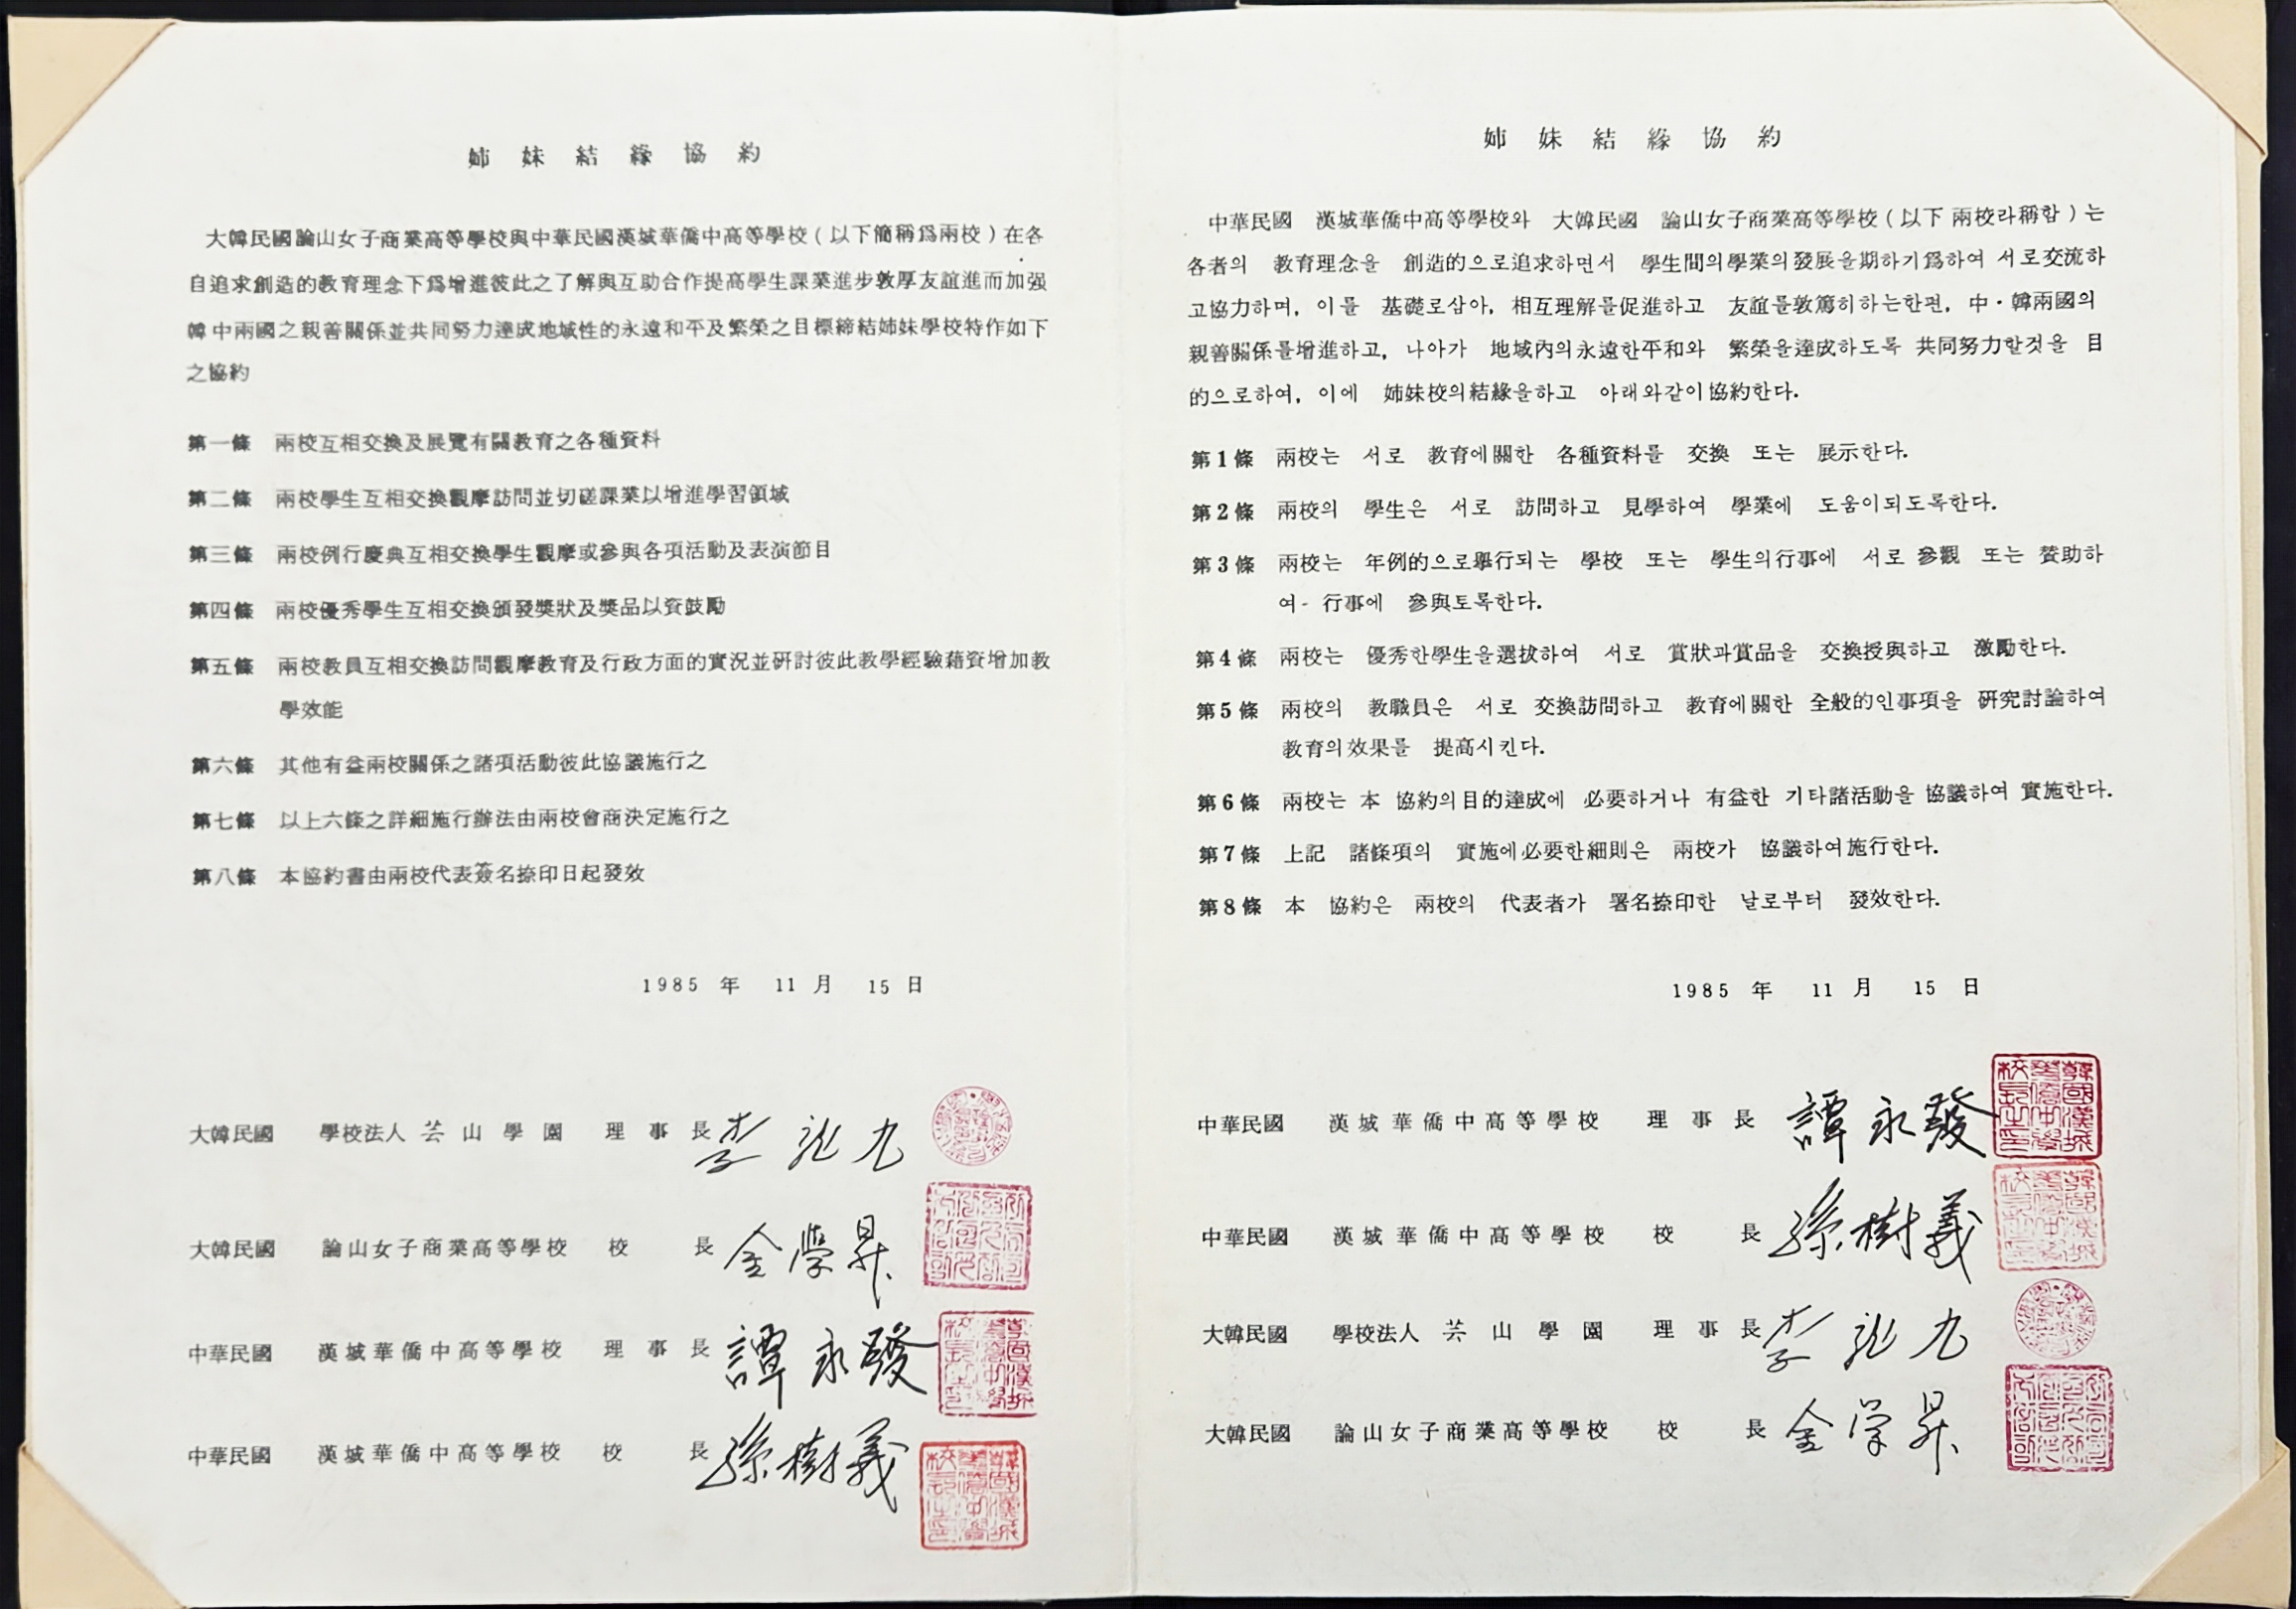 姉妹結緣協約
大韓民國論山女子商業高等學校與中華民國漢城華僑中高等學校(以下簡稱爲兩校)在各
自追求創造的教育理念下爲增進彼此之了解與互助合作提高學生課業進步敦厚友誼進而加强
韓中兩國之親善關係並共同努力達成地域性的永遠和平及繁榮之目標締結姉妹學校特作如下
之協約
第一條 兩校互相交換及展覽有關教育之各種資料
第二條 兩校學生互相交換觀摩訪問並切磋課業以增進學習領域
第三條 兩校例行慶典互相交換學生觀摩或參與各項活動及表演節目
第四條 兩校優秀學生互相交換頒發獎狀及獎品以資鼓勵
第五條 兩校教員互相交換訪問觀摩教育及行政方面的實況並研討彼此教學經驗藉資增加教
學效能
第六條 其他有益兩校關係之諸項活動彼此協議施行之
第七條 以上六條之詳細施行辦法由兩校會商決定施行之
第八條 本協約書由兩校代表簽名捺印日起發效
1985 年 11 月 15 日
大韓民國 學校法人 芸山學園 理事長 李 九
大韓民國 論山女子商業高等學校 校長 金學昇
中華民國 漢城華僑中高等學校 理事長 譚永發
中華民國 漢城華僑中高等學校 校長 孫樹義
姉妹結緣協約
中華民國 漢城華僑中高等學校와 大韓民國 論山女子商業高等學校(以下 兩校라稱함)는
各者의 教育理念을 創造的으로追求하면서 學生間의學業의發展을期하기爲하여 서로交流하
고協力하며, 이를 基礎로삼아, 相互理解를促進하고 友誼를敦篤히하는한편, 中·韓兩國의
親善關係를增進하고, 나아가 地域內의永遠한平和와 繁榮을達成하도록 共同努力할것을 目
的으로하여, 이에 姉妹校의結緣을하고 아래와같이協約한다.
第1條 兩校는 서로 教育에關한 各種資料를 交換 또는 展示한다.
第2條 兩校의 學生은 서로 訪問하고 見學하여 學業에 도움이되도록한다.
第3條 兩校는 年例的으로擧行되는 學校 또는 學生의行事에 서로 參觀 또는 贊助하
여- 行事에 參與토록한다.
第4條 兩校는 優秀한學生을選拔하여 서로 賞狀과賞品을 交換授與하고 激勵한다.
第5條 兩校의 教職員은 서로 交換訪問하고 教育에關한 全般的인事項을 研究討論하여
教育의效果를 提高시킨다.
第6條 兩校는 本 協約의目的達成에 必要하거나 有益한 기타諸活動을 協議하여 實施한다.
第7條 上記 諸條項의 實施에必要한細則은 兩校가 協議하여施行한다.
第8條 本 協約은 兩校의 代表者가 署名捺印한 날로부터 發效한다.
1985 年 11 月 15 日
中華民國 漢城華僑中高等學校 理事長 譚永發
韓國漢城華僑中學校長之印
中華民國 漢城華僑中高等學校 校長 孫樹義
大韓民國 學校法人 芸山學園 理事長 李 九
大韓民國 論山女子商業高等學校 校長 金学昇